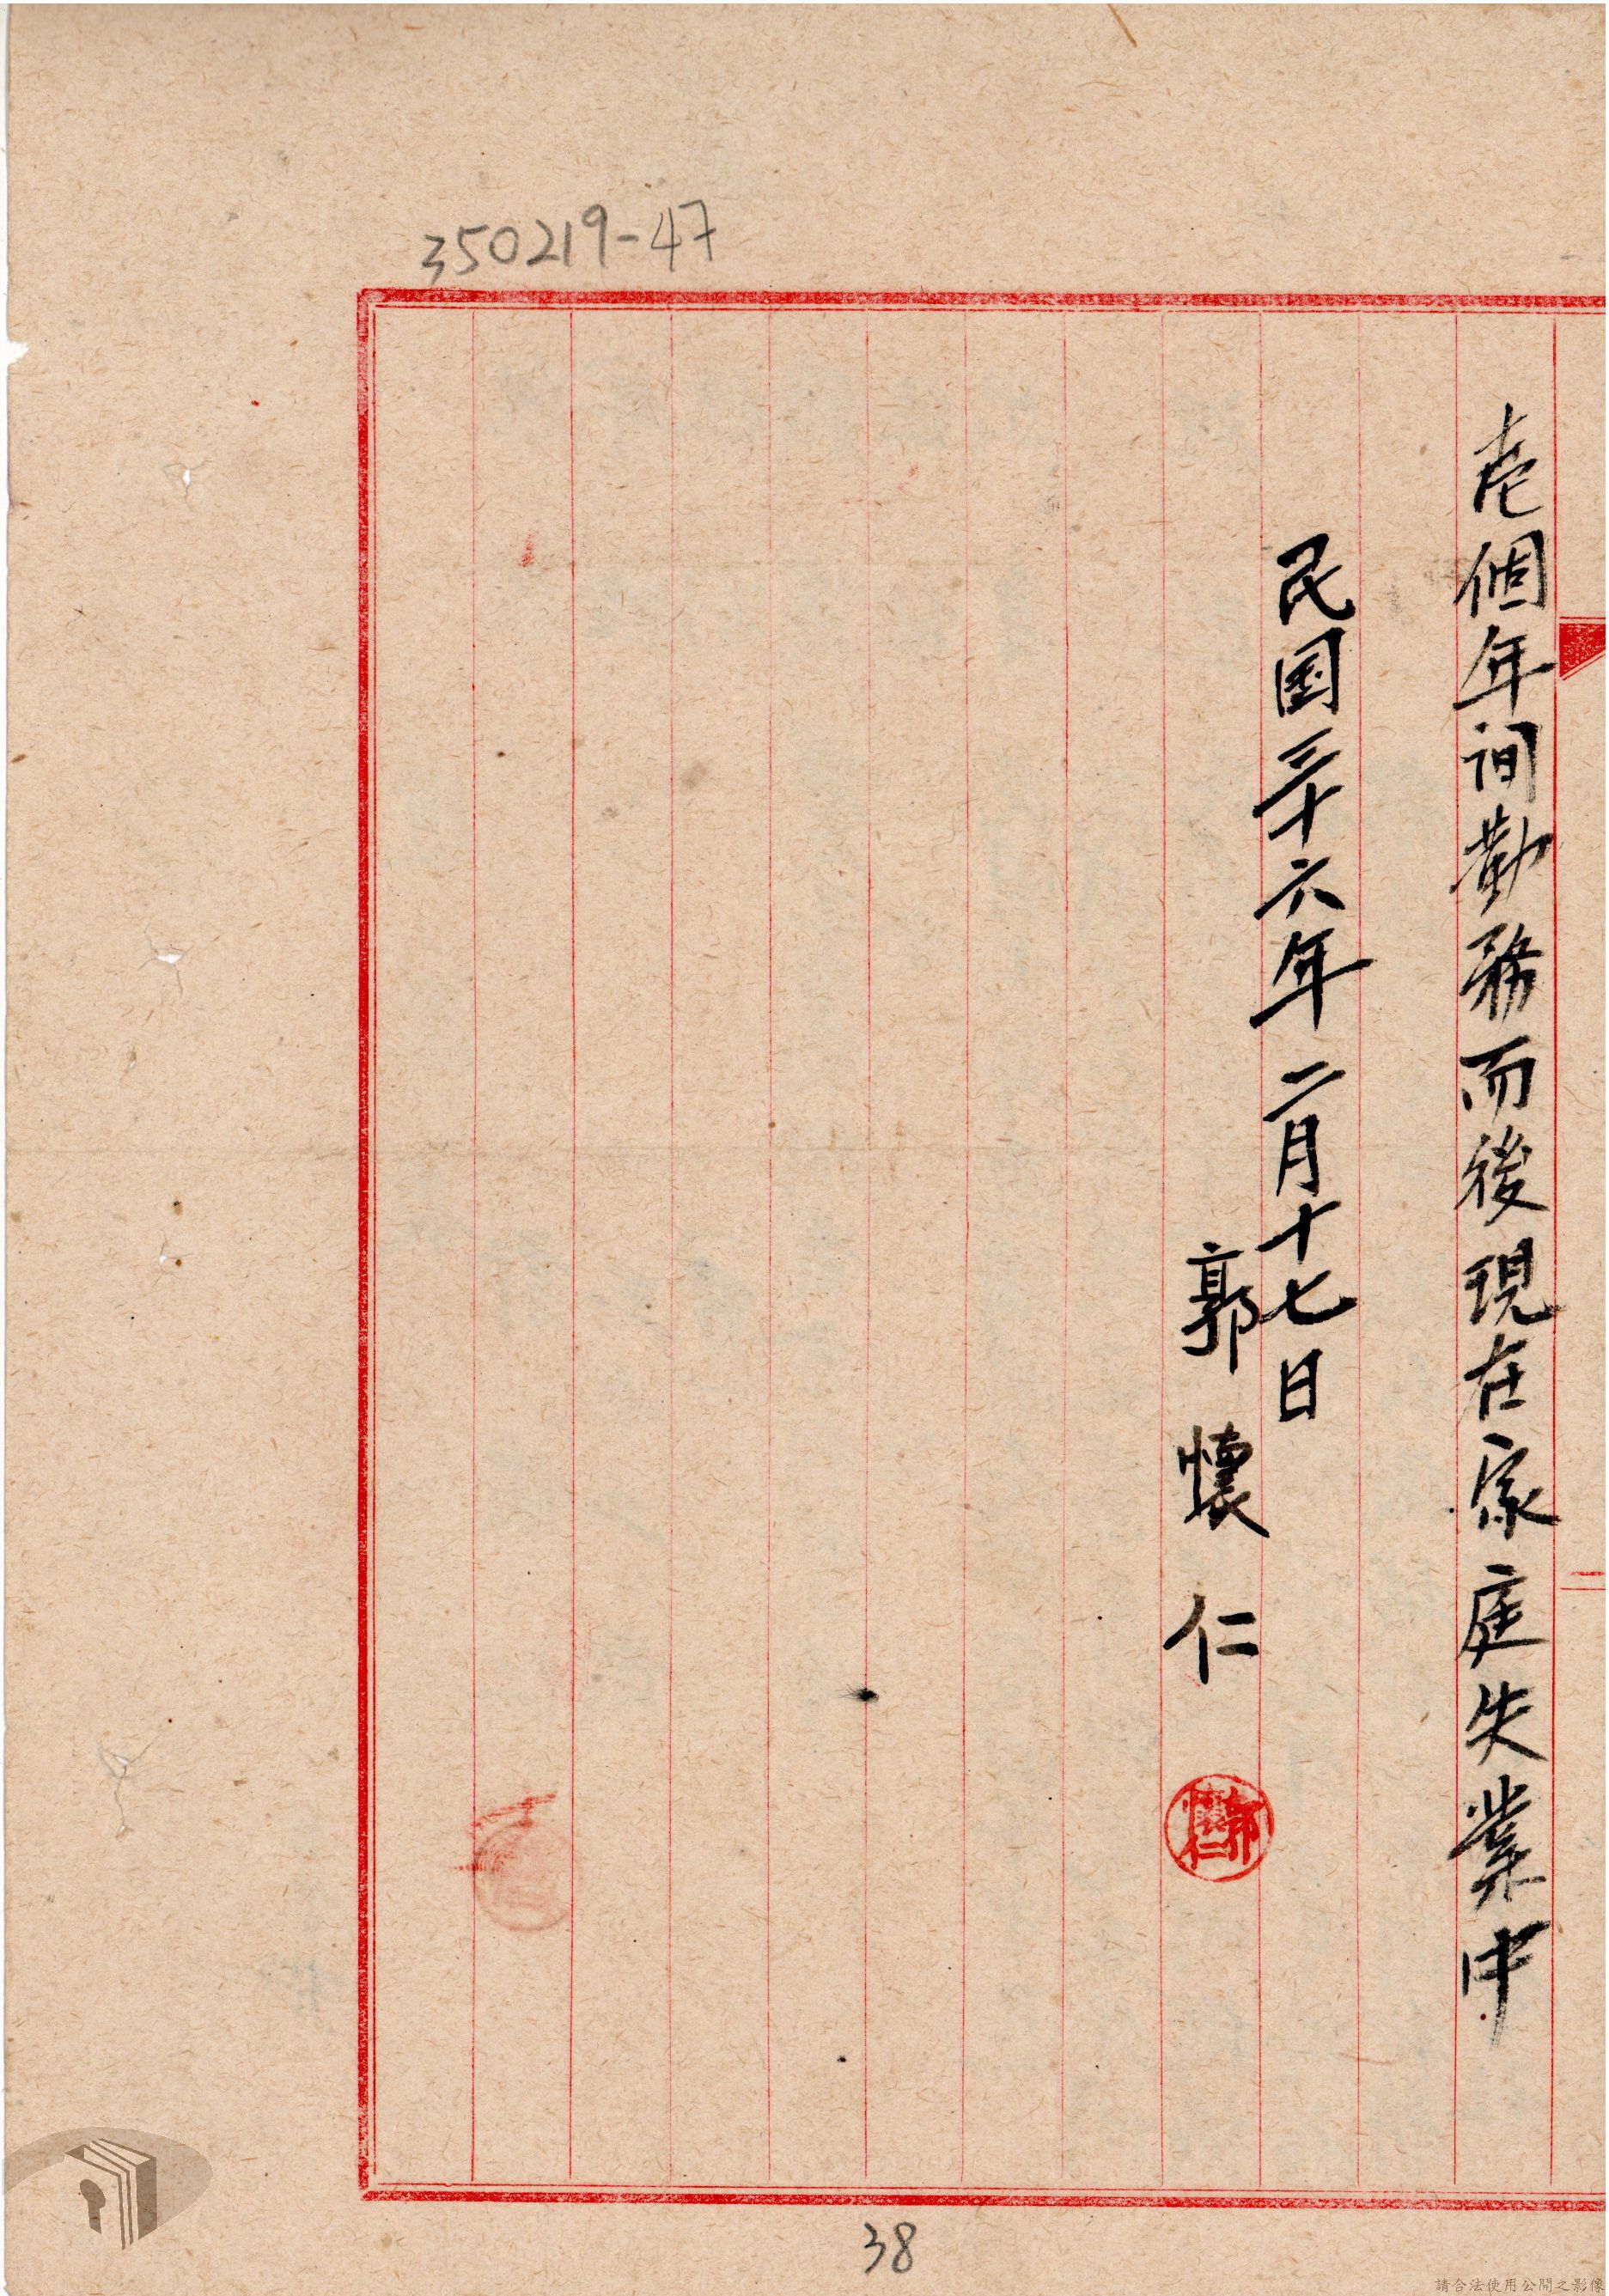 350219-47
壱個年间勤務而後現在家庭失業中
民国三十六年二月十七日
郭懷仁
郭懷仁
38
請合法使用公開之影像